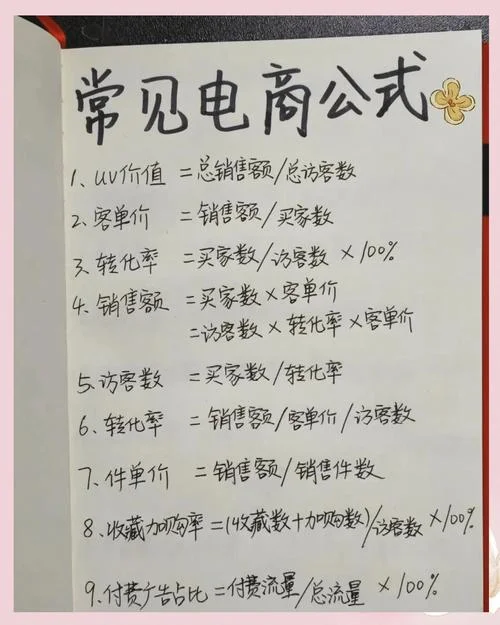 常见电商公式
1、UV价值 =总销售额/总访客数
2、客单价 =销售额/买家数
3、转化率 =买家数/访客数 ×100%
4、销售额 =买家数×客单价
=访客数×转化率×客单价
5、访客数 =买家数/转化率
6、转化率 =销售额/客单价/访客数
7、件单价 =销售额/销售件数
8、收藏加购率=(收藏数+加购数)/访客数×100%
9、付费广告占比=付费流量/总流量 ×100%